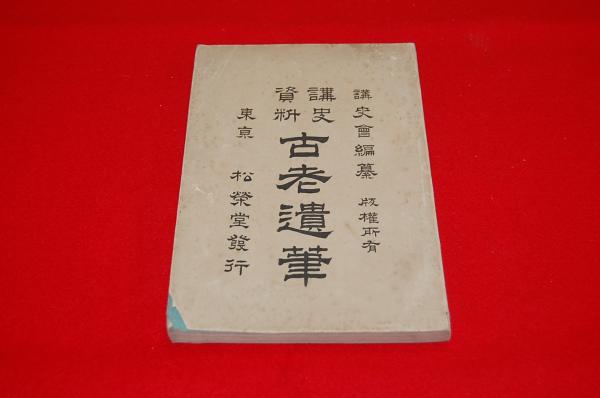 講史會編纂 版權所有
講史資料 古老遺筆
東京 松榮堂發行